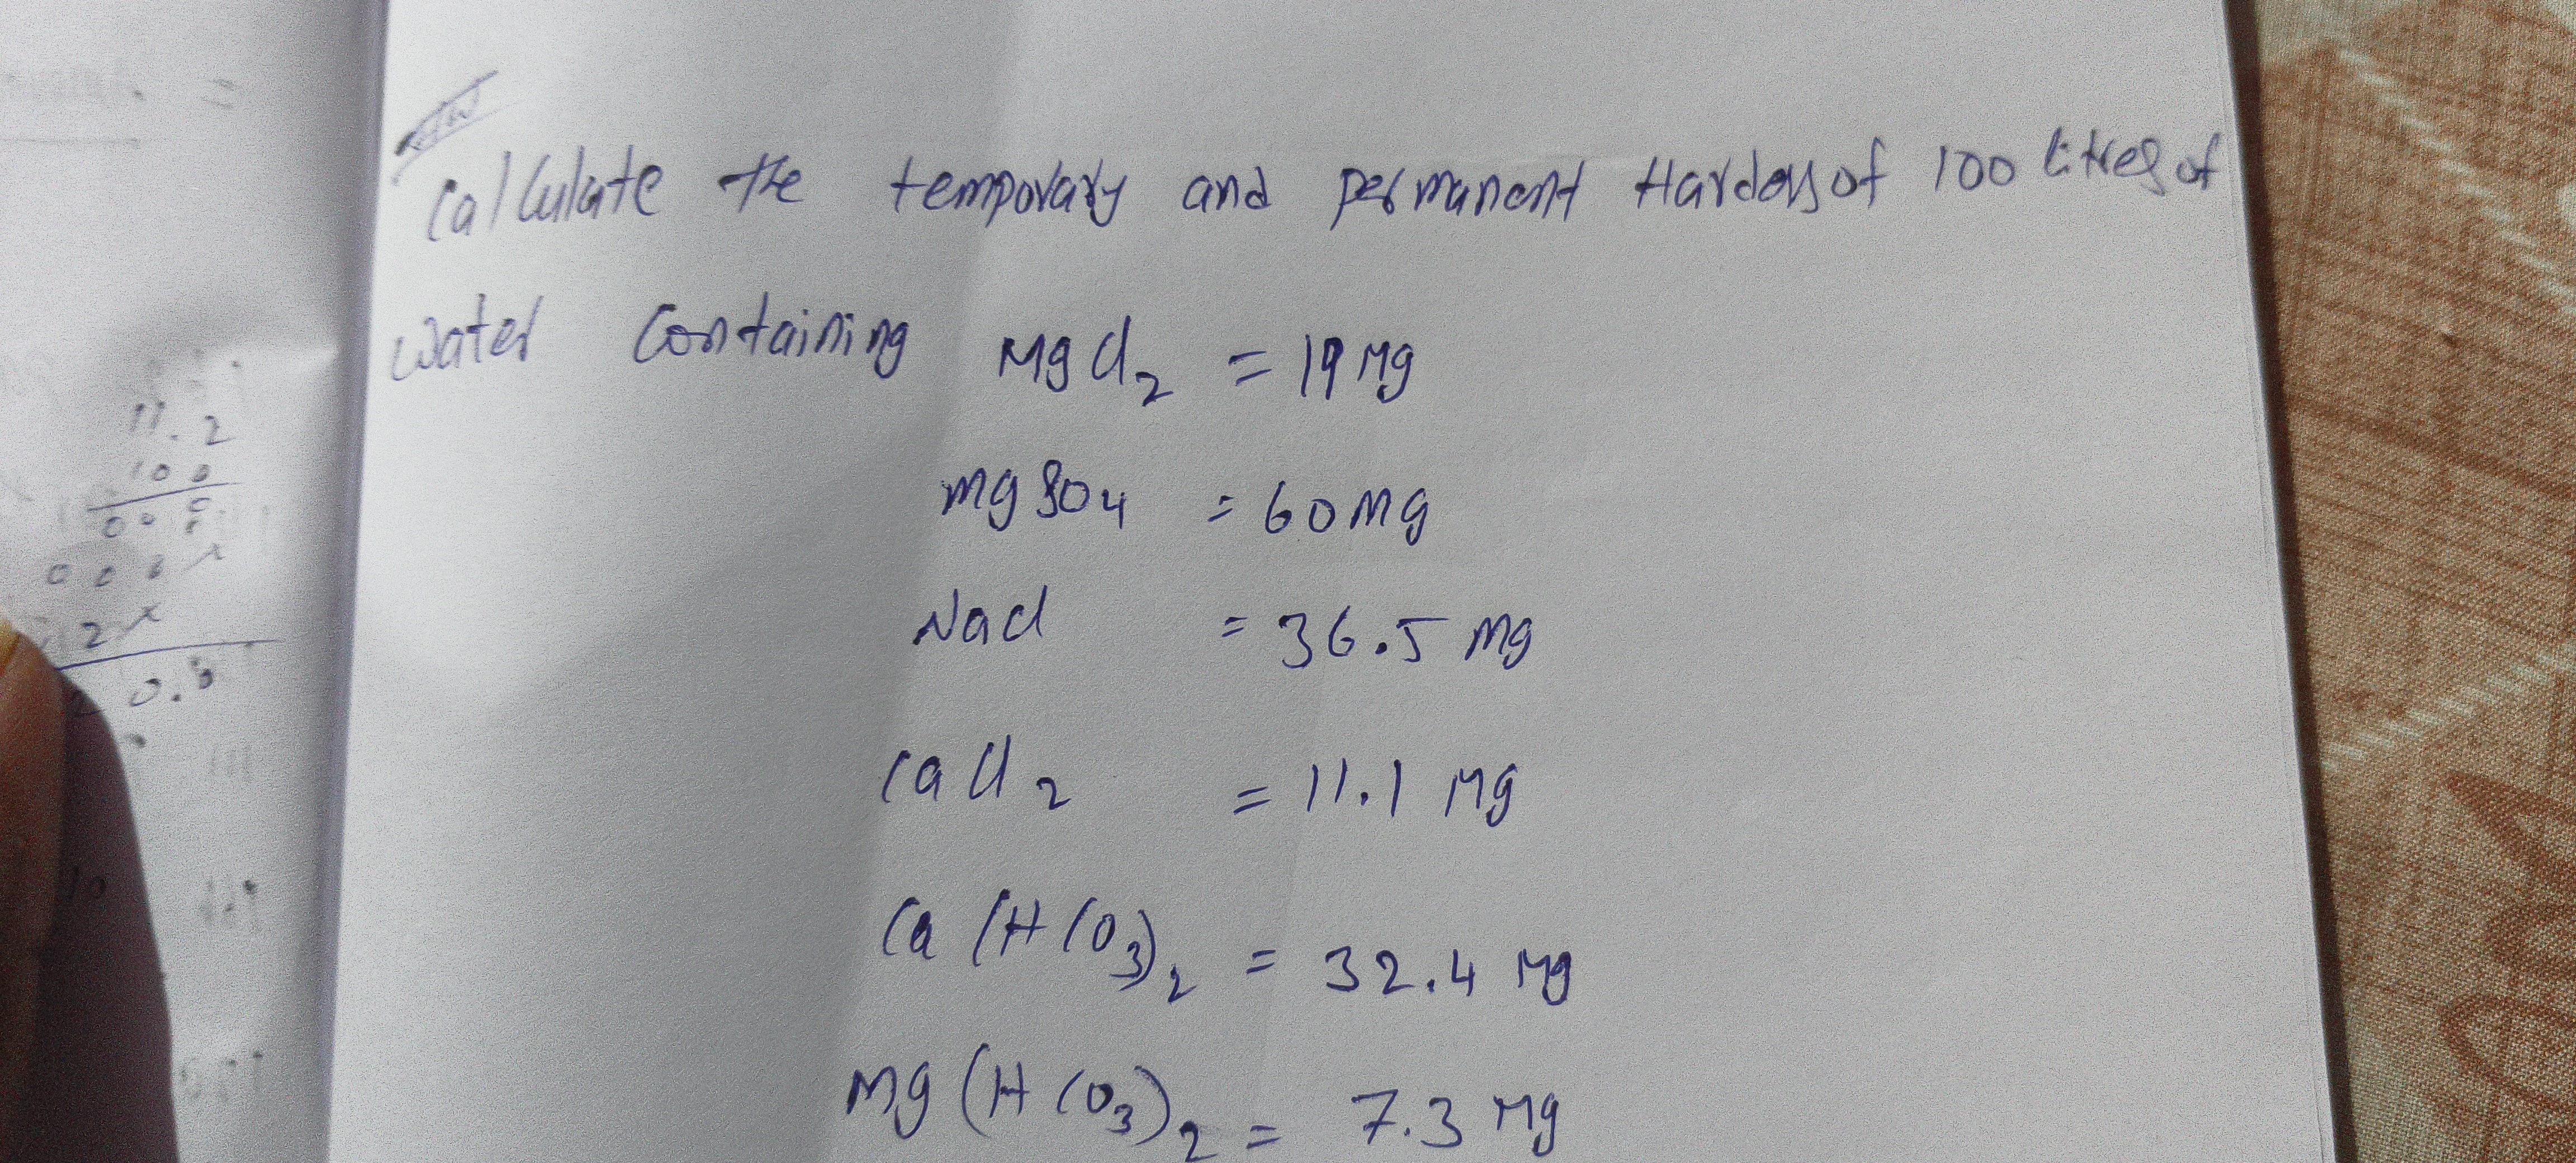 HW
Calculate the temporary and permanent Hardess of 100 litres of
Water Containing MgCl2 = 19 Mg
MgSO4 = 60 Mg
NaCl = 36.5 Mg
CaCl2 = 11.1 Mg
Ca(HCO3)2 = 32.4 Mg
Mg(HCO3)2 = 7.3 Mg
11.2
100